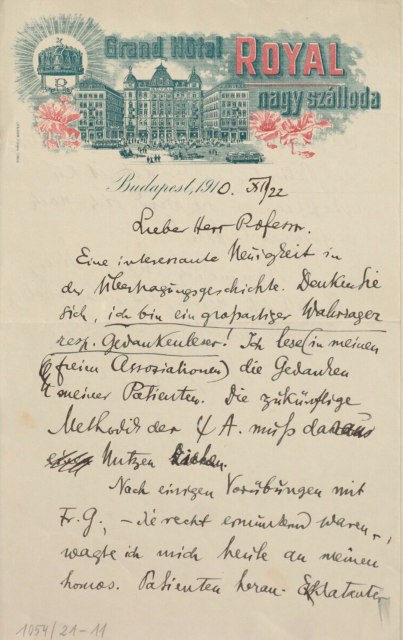 Grand Hôtel ROYAL
nagy szálloda
Budapest, 1910. XI/22
Lieber Herr Professor.
Eine interessante Neuigkeit in
der Übertragungsgeschichte. Denken Sie
sich, ich bin ein großartiger Wahrsager
resp. Gedankenleser! Ich lese (in meinen
freien Assoziationen) die Gedanken
meiner Patienten. Die zukünftige
Methodik der ψA. muß daraus
Nutzen ziehen.
Nach einigen Vorübungen mit
Fr. G., – die recht ermunternd waren –,
wagte ich mich heute an meinen
homos. Patienten heran. Eklatanter
1054/21-11